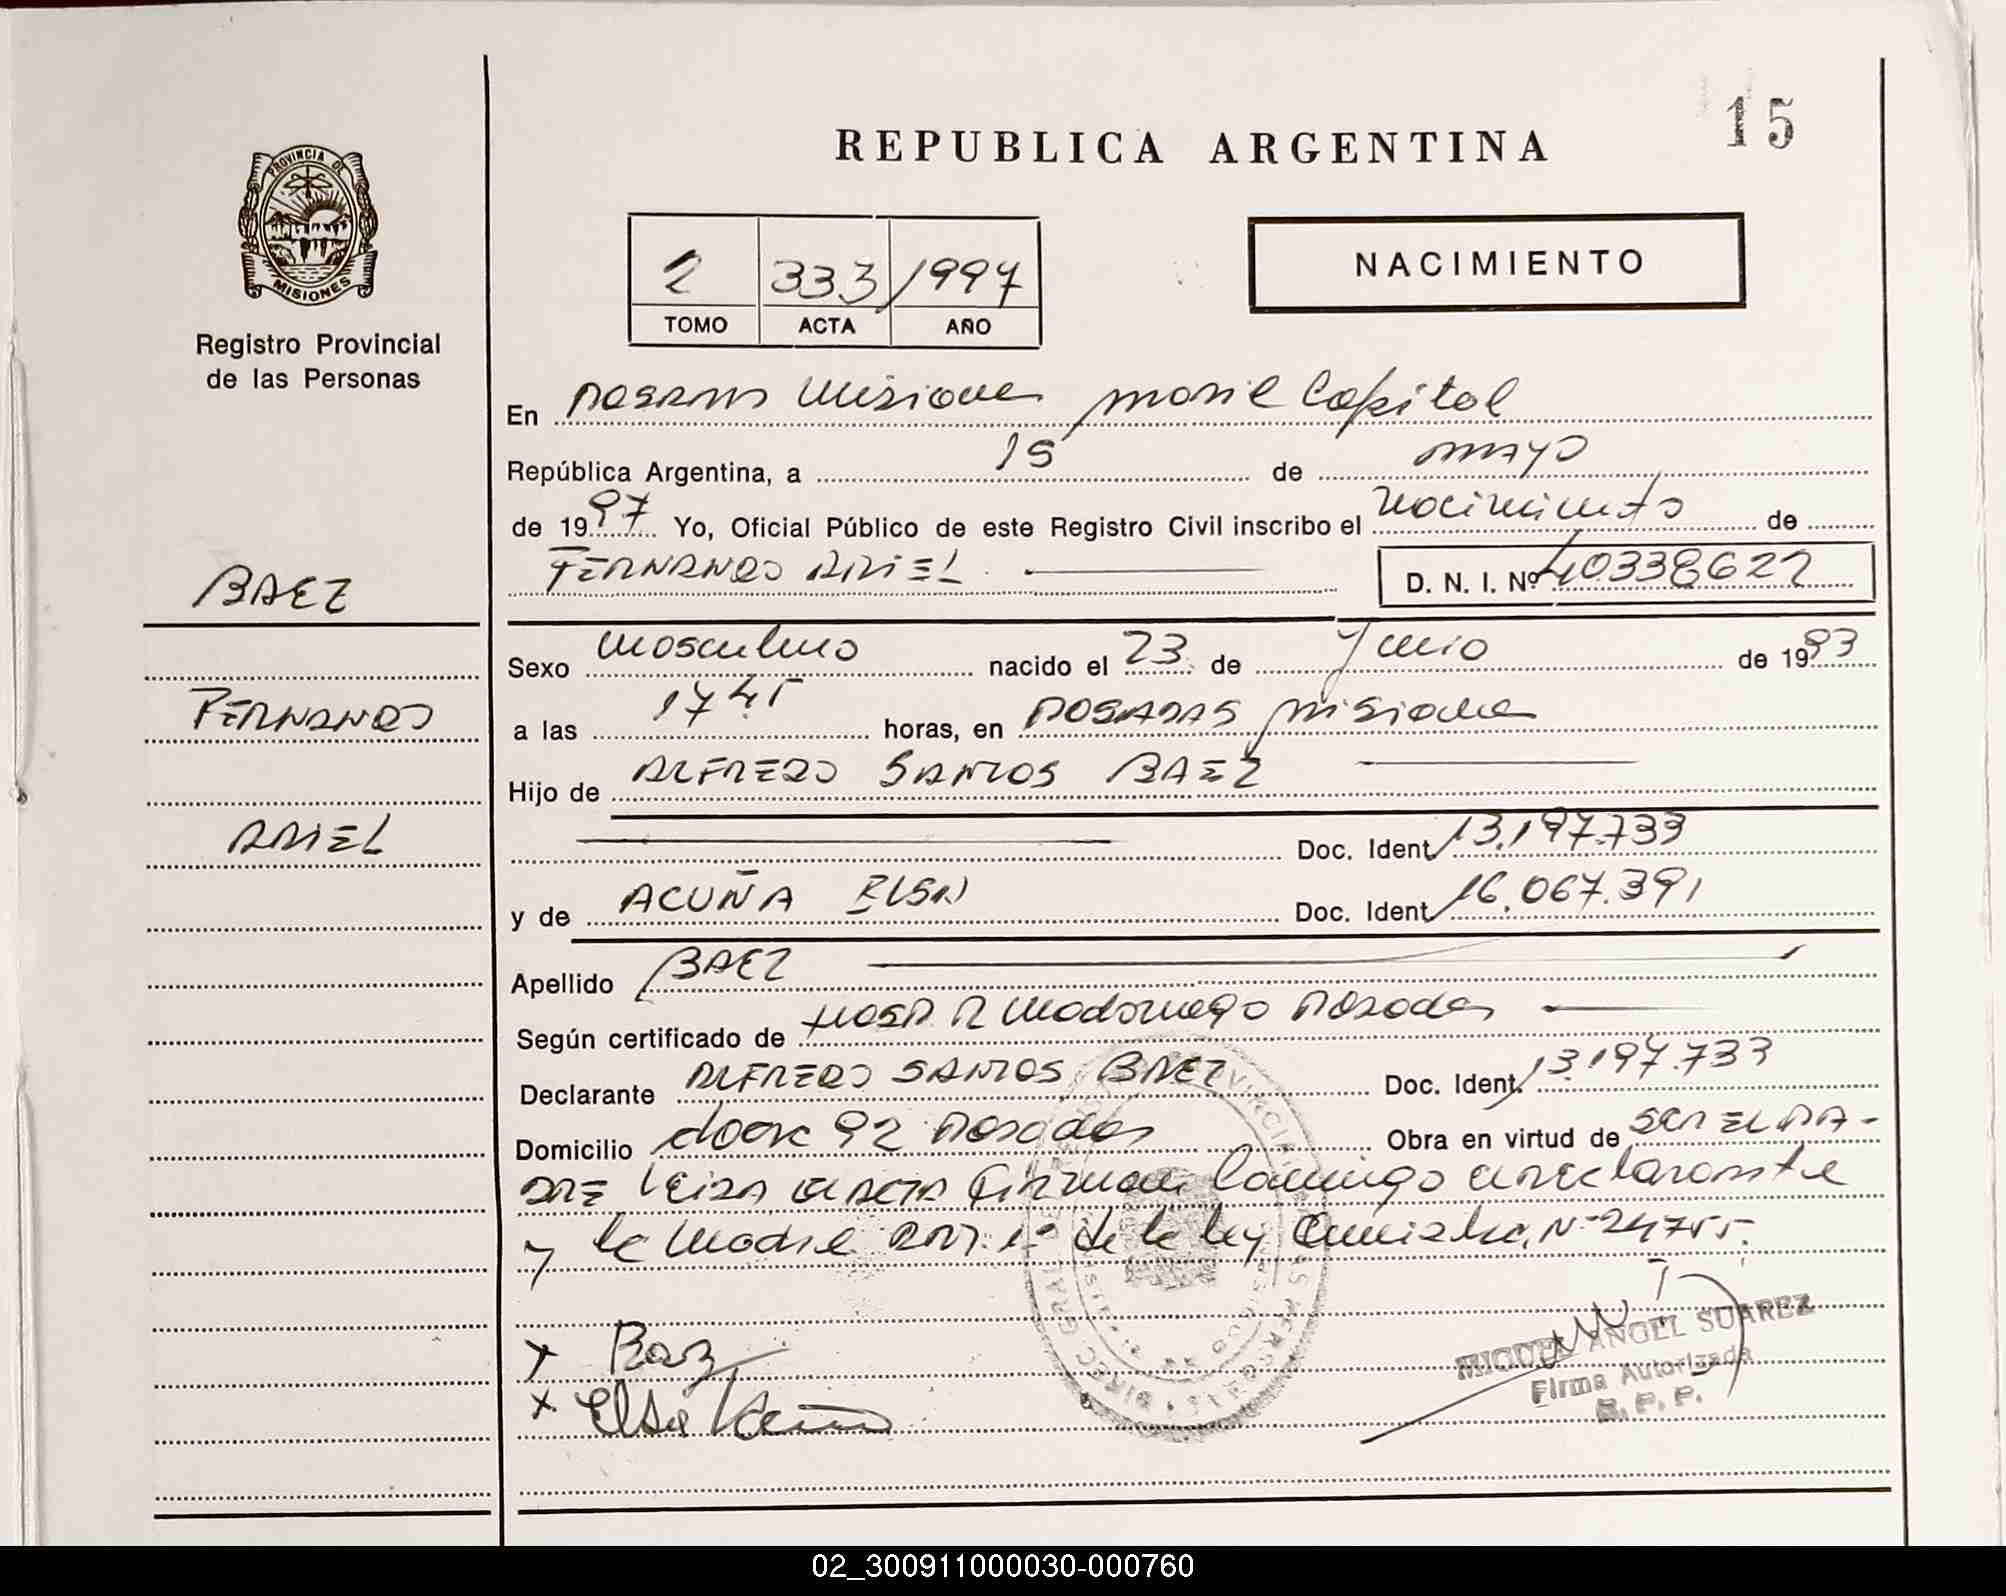 15
REPUBLICA ARGENTINA
PROVINCIA DE
MISIONES
Registro Provincial
de las Personas
2 333 1997
TOMO ACTA AÑO
NACIMIENTO
En POSADAS Misiones movil Capital
República Argentina, a 15 de mayo
de 1997 Yo, Oficial Público de este Registro Civil inscribo el nacimiento de
FERNANDO ARIEL D. N. I. Nº 40338622
BAEZ
Sexo masculino nacido el 23 de Junio de 1993
FERNANDO
a las 1745 horas, en POSADAS misiones
Hijo de ALFREDO SANTOS BAEZ
ARIEL
Doc. Ident. 13.197.733
y de ACUÑA ELSA Doc. Ident. 16.067.391
Apellido BAEZ
Según certificado de HOSP. R Madariaga Posadas
Declarante ALFREDO SANTOS BAEZ Doc. Ident. 13.197.733
Domicilio 92 Posadas Obra en virtud de SER EL PA-
DRE Leida acta firman conmigo el declarante
y la Madre de la ley N° 24755.
x Baez
x Elsa Acuña
MIGUEL ANGEL SUAREZ
Firma Autorizada
R. P. P.
02_300911000030-000760